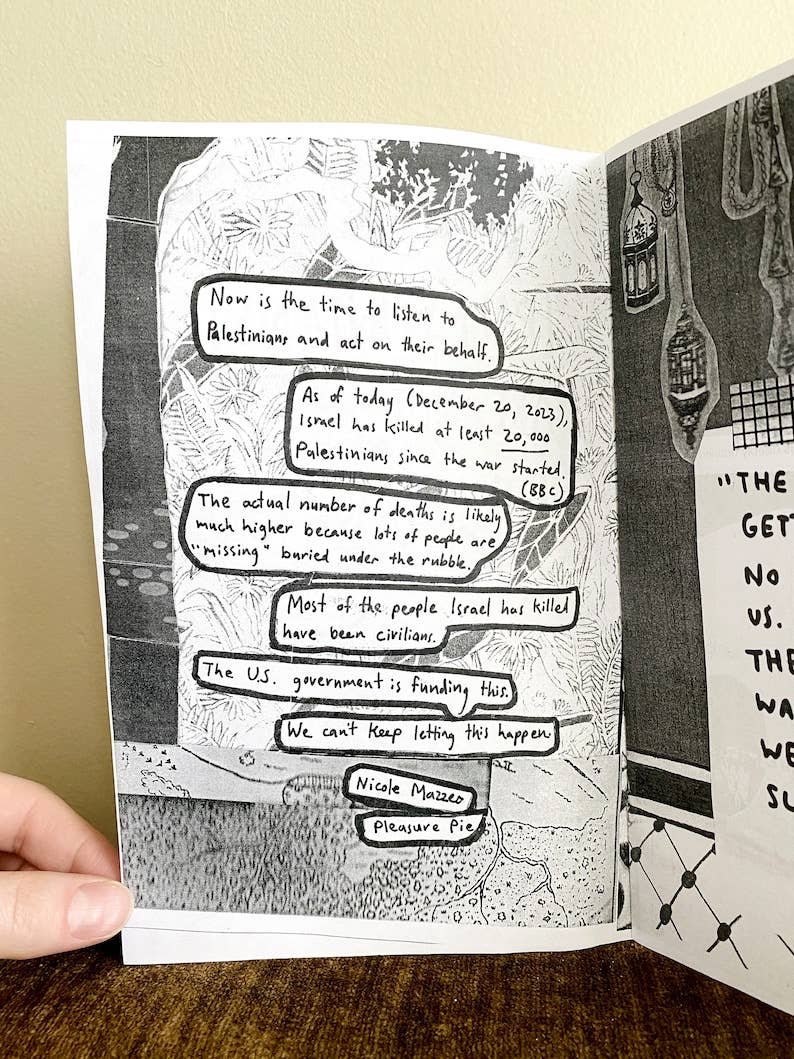 Now is the time to listen to
Palestinians and act on their behalf.
As of today (December 20, 2023),
Israel has killed at least 20,000
Palestinians since the war started.
(BBC)
The actual number of deaths is likely
much higher because lots of people are
"missing" buried under the rubble.
Most of the people Israel has killed
have been civilians.
The U.S. government is funding this.
We can't keep letting this happen
Nicole Mazzeo
Pleasure Pie
"THE
GETT
NO
US.
THE
WA
WE
SU